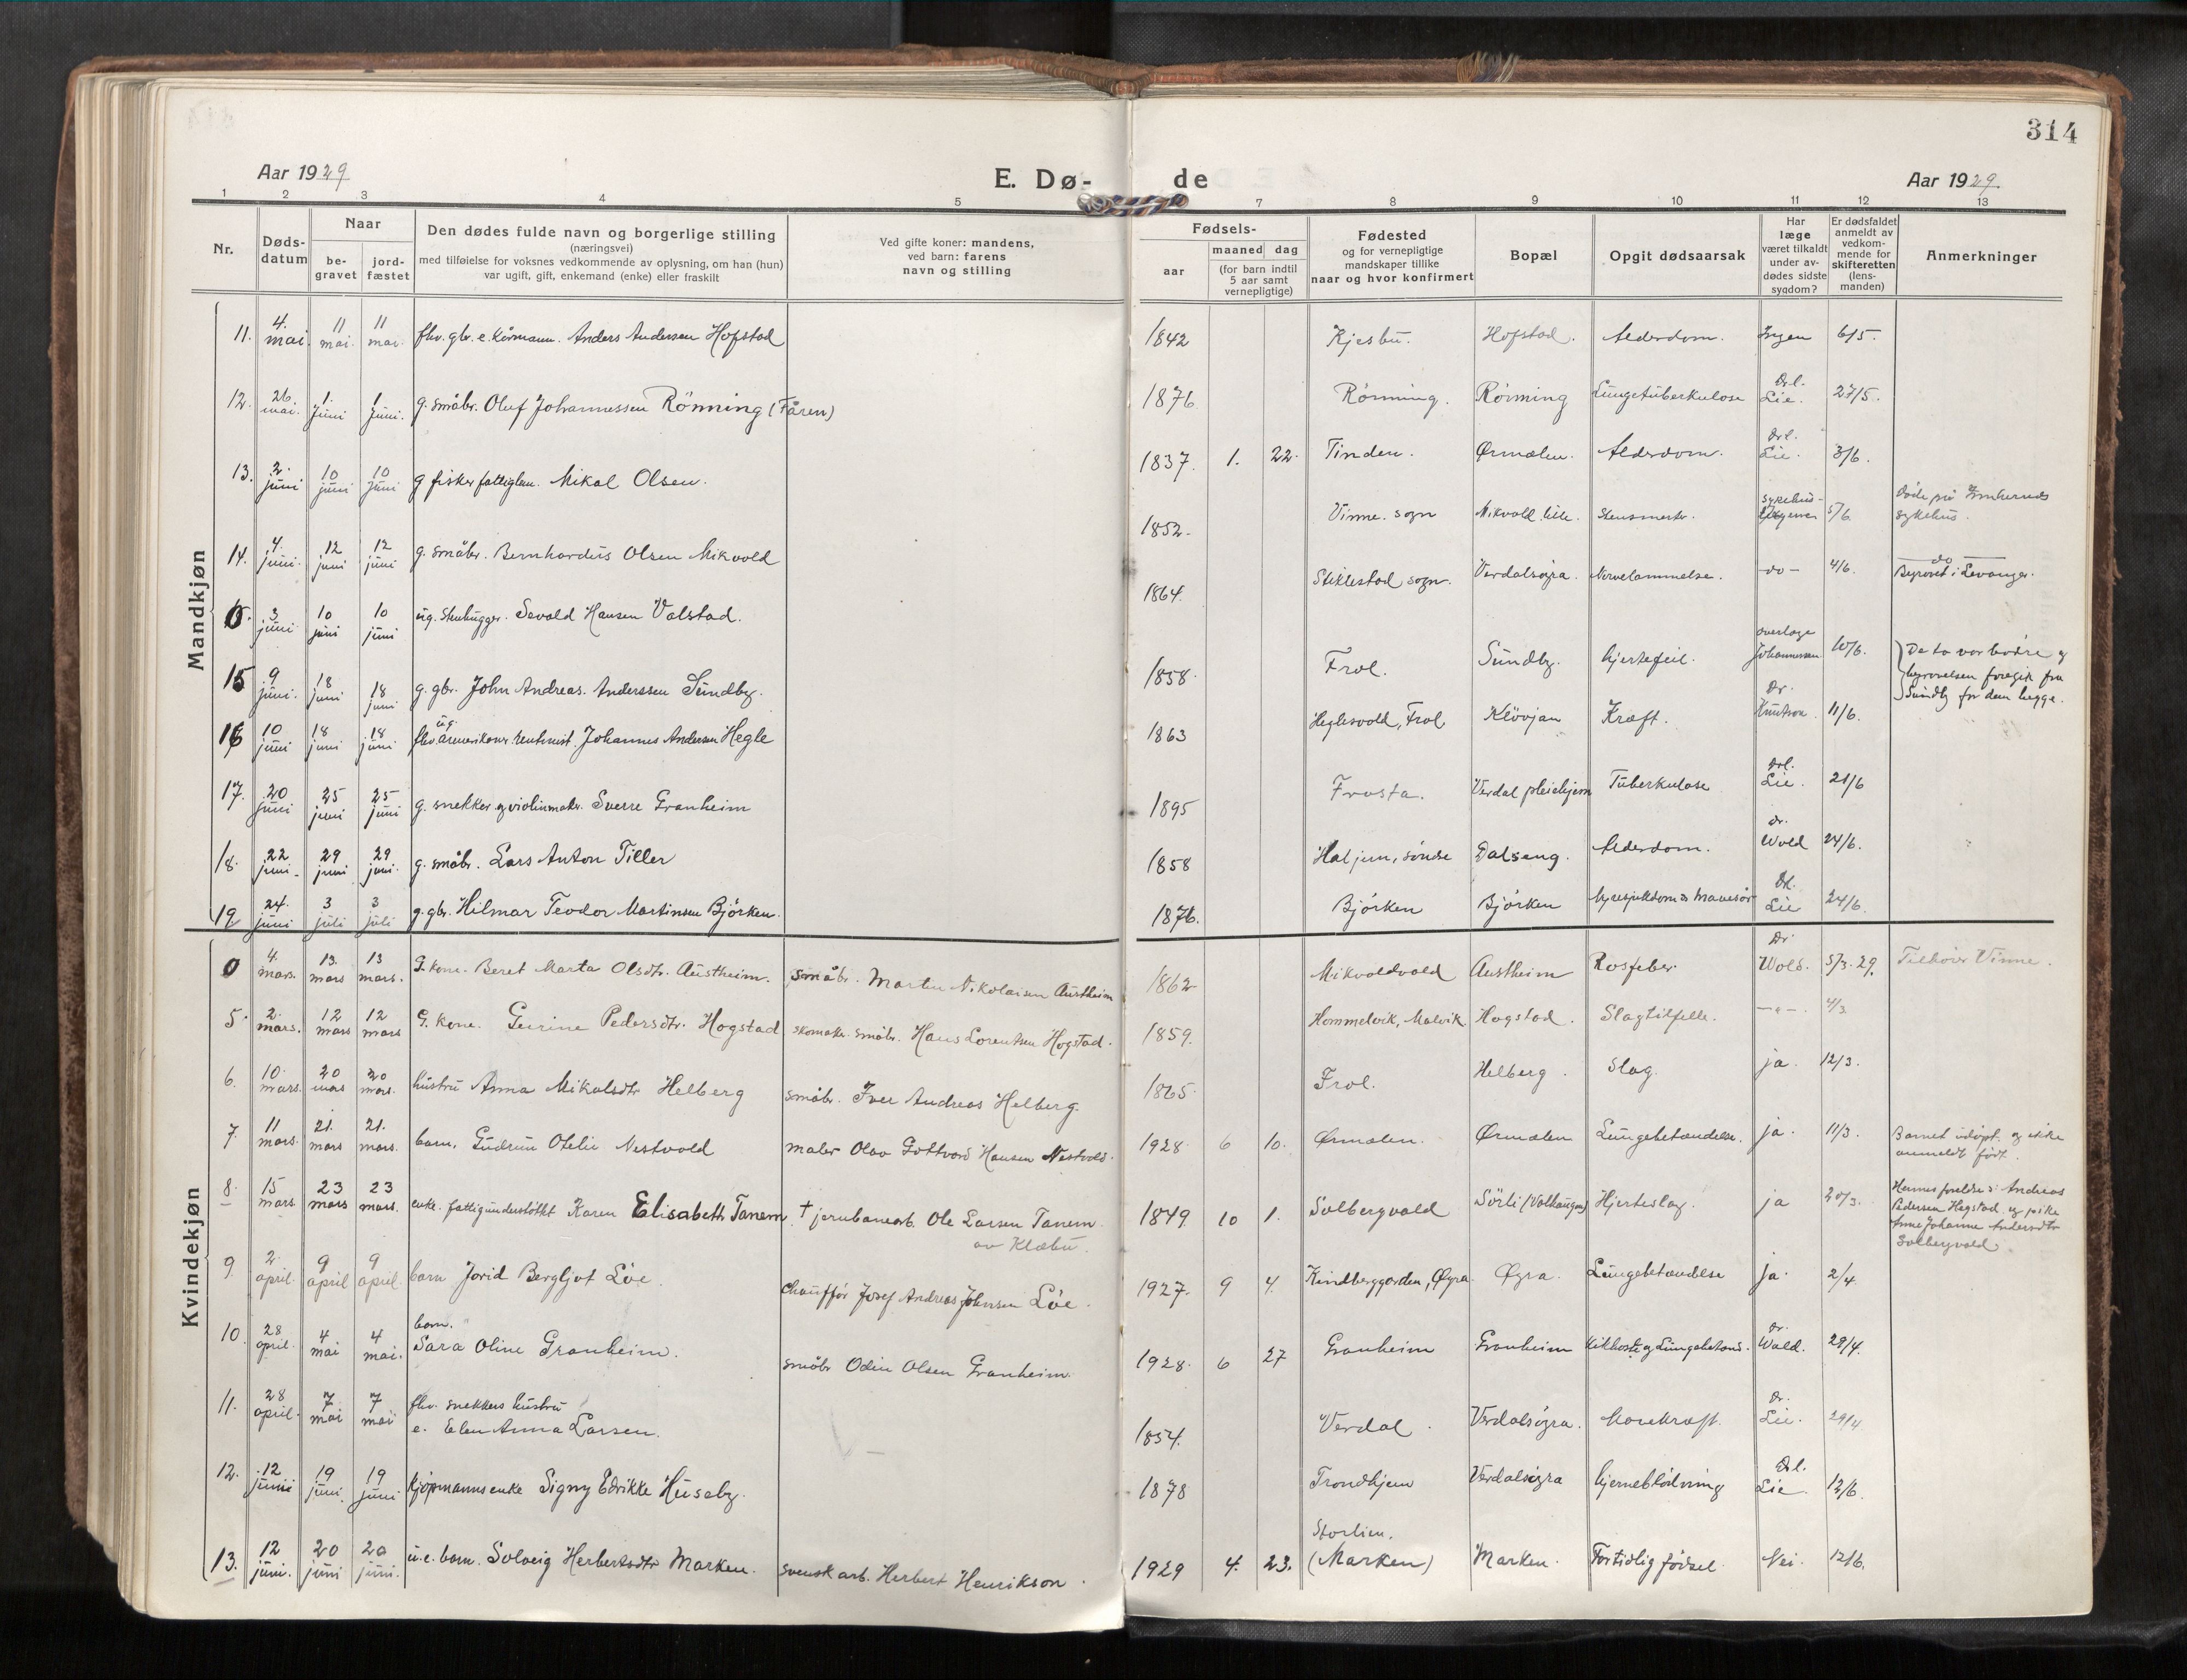 314
Aar 1929
E. Dø-
de
Aar 1929.
1 2 3 4 5 7 8 9 10 11 12 13
Nr.
Døds-
datum
Naar
be-
gravet
jord-
fæstet
Den dødes fulde navn og borgerlige stilling
(næringsvei)
med tilføielse for voksnes vedkommende av oplysning, om han (hun)
var ugift, gift, enkemand (enke) eller fraskilt
Ved gifte koner: mandens,
ved barn: farens
navn og stilling
Fødsels-
aar
maaned dag
(for barn indtil
5 aar samt
vernepligtige)
Fødested
og for vernepligtige
mandskaper tillike
naar og hvor konfirmert
Bopæl
Opgit dødsaarsak
Har
læge
været tilkaldt
under av-
dødes sidste
sygdom?
Er dødsfaldet
anmeldt av
vedkom-
mende for
skifteretten
(lens-
manden)
Anmerkninger
Mandkjøn
11. 4. mai 11 mai 11 mai fhv. gbr. e. Anders Andersen Hofstad 1842 Kjesbu. Hofstad. Alderdom. Ingen 6/5.
12. 26. mai. 1. Juni 1. Juni. g. småbr. Oluf Johannessen Rönning (Fåren) 1876 Rönning. Rönning Lungetuberkulose Drl. Lie. 27/5.
13. 2. juni 10 juni 10 juni g fisker fattiglem. Mikal Olsen. 1837. 1. 22. Tinden. Ørmælen. Alderdom. Drl. Lie. 3/6.
14. 4. juni. 12 juni 12 juni g. småbr. Bernhardus Olsen Mikvold 1852. Vinne. sogn Mikvold lille. sykehus- 5/6. Döde på Innherreds
sykehus.
0. 3 juni 10 juni 10 juni ug. Stenhugger. Sevald Hansen Valstad. 1864. Stiklestad sogn. Verdalsøra. Nervelammelse. -do- 4/6. do
Begravet i Levanger.
15 9 juni. 18 juni 18 juni g. gbr. John Andreas Anderssen Sundby. 1858. Frol. Sundby. hjertefeil. overlæge Johannessen 10/6. De to var brödre og
begravelsen foregik fra
Sundby for dem begge.
16 10 juni 18 juni 18 juni fhv. ug. amerikaner rentenist. Johannes Andersen Hegle 1863 Heglesvold, Frol Klövjan Kræft. Dr. Knutson. 11/6.
17. 20 juni 25 juni 25 juni g. snekker og violinmaker. Sverre Granheim 1895 Frosta. Verdal pleiehjem Tuberkulose Drl. Lie. 21/6
18. 22 juni. 29 juni 29 juni. g. småbr. Lars Anton Tiller 1858 Haljem, söndre Dalseng. Alderdom. Dr. Wold 24/6.
19 24. juni 3 juli 3 juli g. gbr. Hilmar Teodor Martinsen Björken. 1876. Björken Björken Drl. Lie 24/6.
Kvindekjøn
0 4. mars. 13. mars 13 mars. G. kone. Beret Marta Olsdtr. Austheim. småbr. Martin Nikolaisen Austheim 1862 Mikvoldvald Austheim Rosfeber Dr. Wold. 5/3. 29. Tilhörer Vinne.
5. 2. mars. 12 mars 12 mars G. kone. Gurine Pedersdtr. Hogstad skomaker. småbr. Hans Lorentsen Hogstad. 1859. Hommelvik, Malvik. Hogstad. Slagtilfelle. -"-. 4/3
6. 10. mars. 20 mars 20 mars. hustru Anna Mikalsdtr Helberg småbr. Iver Andreas Helberg. 1865. Frol. Helberg. Slag. ja. 12/3.
7. 11 mars. 21. mars 21. mars. barn. Gudrun Otelie Nestvold maler Olav Gottvard Hansen Nestvold. 1928. 6 10. Ørmælen. Ørmælen Lungebetændelse. ja. 11/3. Barnet udöpt. og ikke
anmeldt födt.
8. 15 mars 23 mars 23 mars. enke. fattigunderstöttet Karen Elisabeth Tanem † jernbanearb. Ole Larsen Tanem
av Klæbu. 1849 10 1. Solbergvald Sörli Hjerteslag. ja 20/3. Hennes foreldre: Andreas
Pedersen Hegstad og pike
Anne Johanne Andersdtr
Solbergvald
9. 2. april. 9 april 9 april. barn Jorid Bergljot Löe. Chauffør Josef Andreas Johnsen Löe. 1927. 9 4. Kindberggarden, Øyra Øyra. Lungebetændelse ja. 2/4.
10. 28 april. 4 mai 4 mai. barn.
Sara Oline Granheim. småbr Odin Olsen Granheim. 1928. 6 27 Granheim Granheim Kikhoste og Lungebetænd. Dr. Wold. 29/4.
11. 28 april. 7 mai 7 mai fhv. snekkers hustru
e. Elen Anna Larsen. 1854. Verdal. Verdalsöra. Mavekræft. Dr. Lie. 29/4
12. 12 juni 19 juni. 19 juni kjöpmannsenke Signy Edrikke Huseby. 1878 Trondhjem Verdalsöra hjerneblödning Drl. Lie. 12/6.
13. 12 juni. 20 juni 20 juni. u.e. barn. Solveig Herbertsdtr Marken. svensk arb. Herbert Henrikson. 1929 4. 23. Storlien.
(Marken) Marken. Fortidlig födsel. Nei. 12/6.